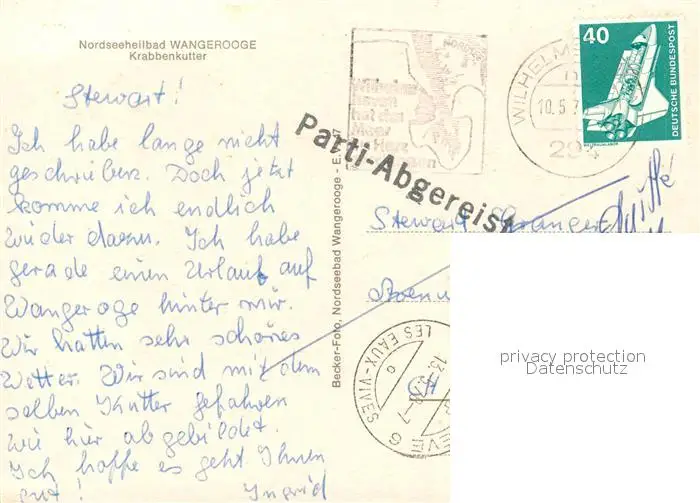 Nordseeheilbad WANGEROOGE
Krabbenkutter
Stewart!
Ich habe lange nicht
geschrieben. Doch jetzt
komme ich endlich
wieder dazu. Ich habe
gerade einen Urlaub auf
Wangerooge hinter mir.
Wir hatten sehr schönes
Wetter. Wir sind mit dem
selben Kutter gefahren
wie hier abgebildet.
Ich hoffe es geht Ihnen
gut! Ingrid
Becker-Foto, Nordseebad Wangerooge - E.
Parti-Abgereist
WILHELM
10.5.7
29
40
DEUTSCHE BUNDESPOST
WELTRAUMLABOR
Stewart
LES EAUX-VIVES
13.
EVE 6
privacy protection
Datenschutz